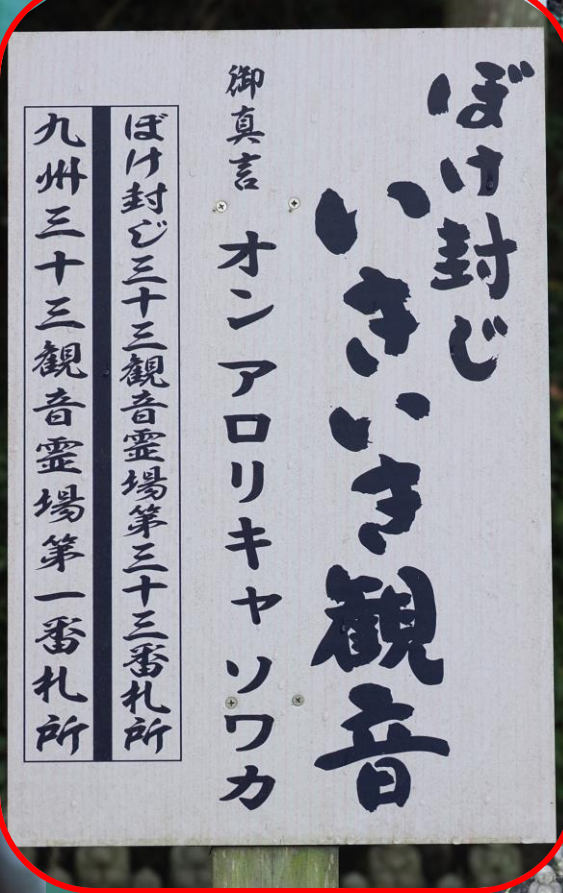 ぼけ封じ
いきいき観音
御真言 オン アロリキャ ソワカ
ぼけ封じ三十三観音霊場第三十三番札所
九州三十三観音霊場第一番札所